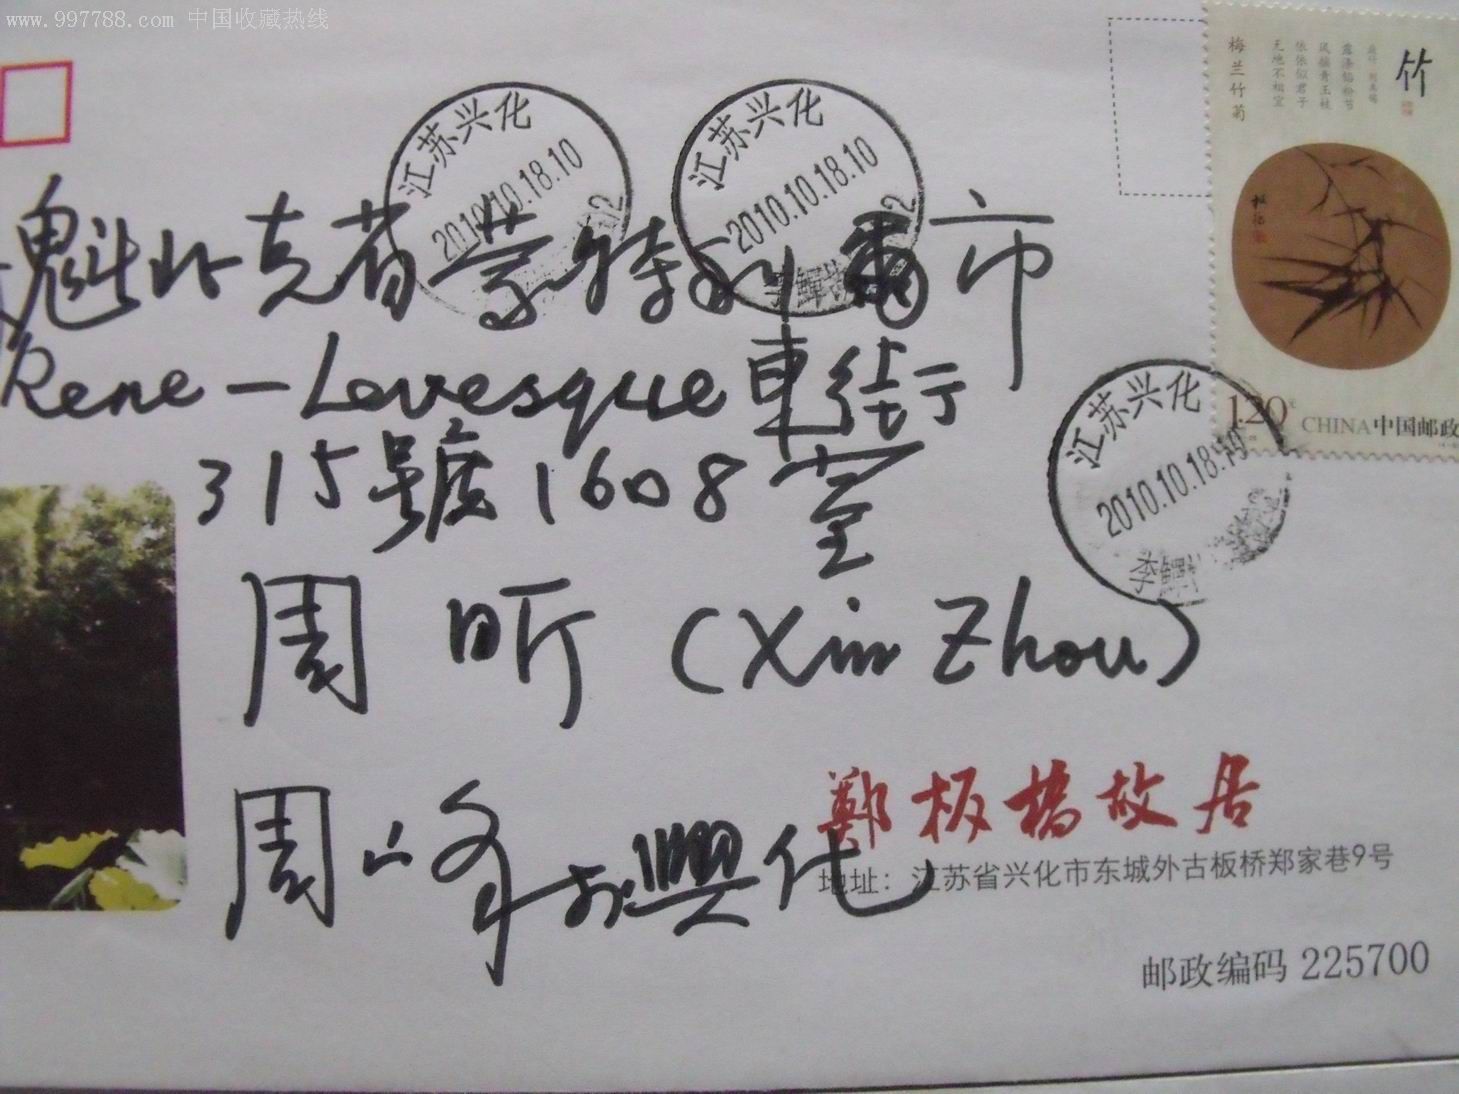 www.997788.com 中国收藏热线
江苏兴化
2010.10.18.10
江苏兴化
2010.10.18.10
梅兰竹菊
竹
依依似君子
无地不相宜
1.20元
CHINA中国邮政
江苏兴化
2010.10.18.10
魁北克省蒙特利爾市
Rene-Levesque 東街
315號1608室
周昕 (Xin Zhou)
周峰 於興化
郑板橋故居
地址：江苏省兴化市东城外古板桥郑家巷9号
邮政编码 225700